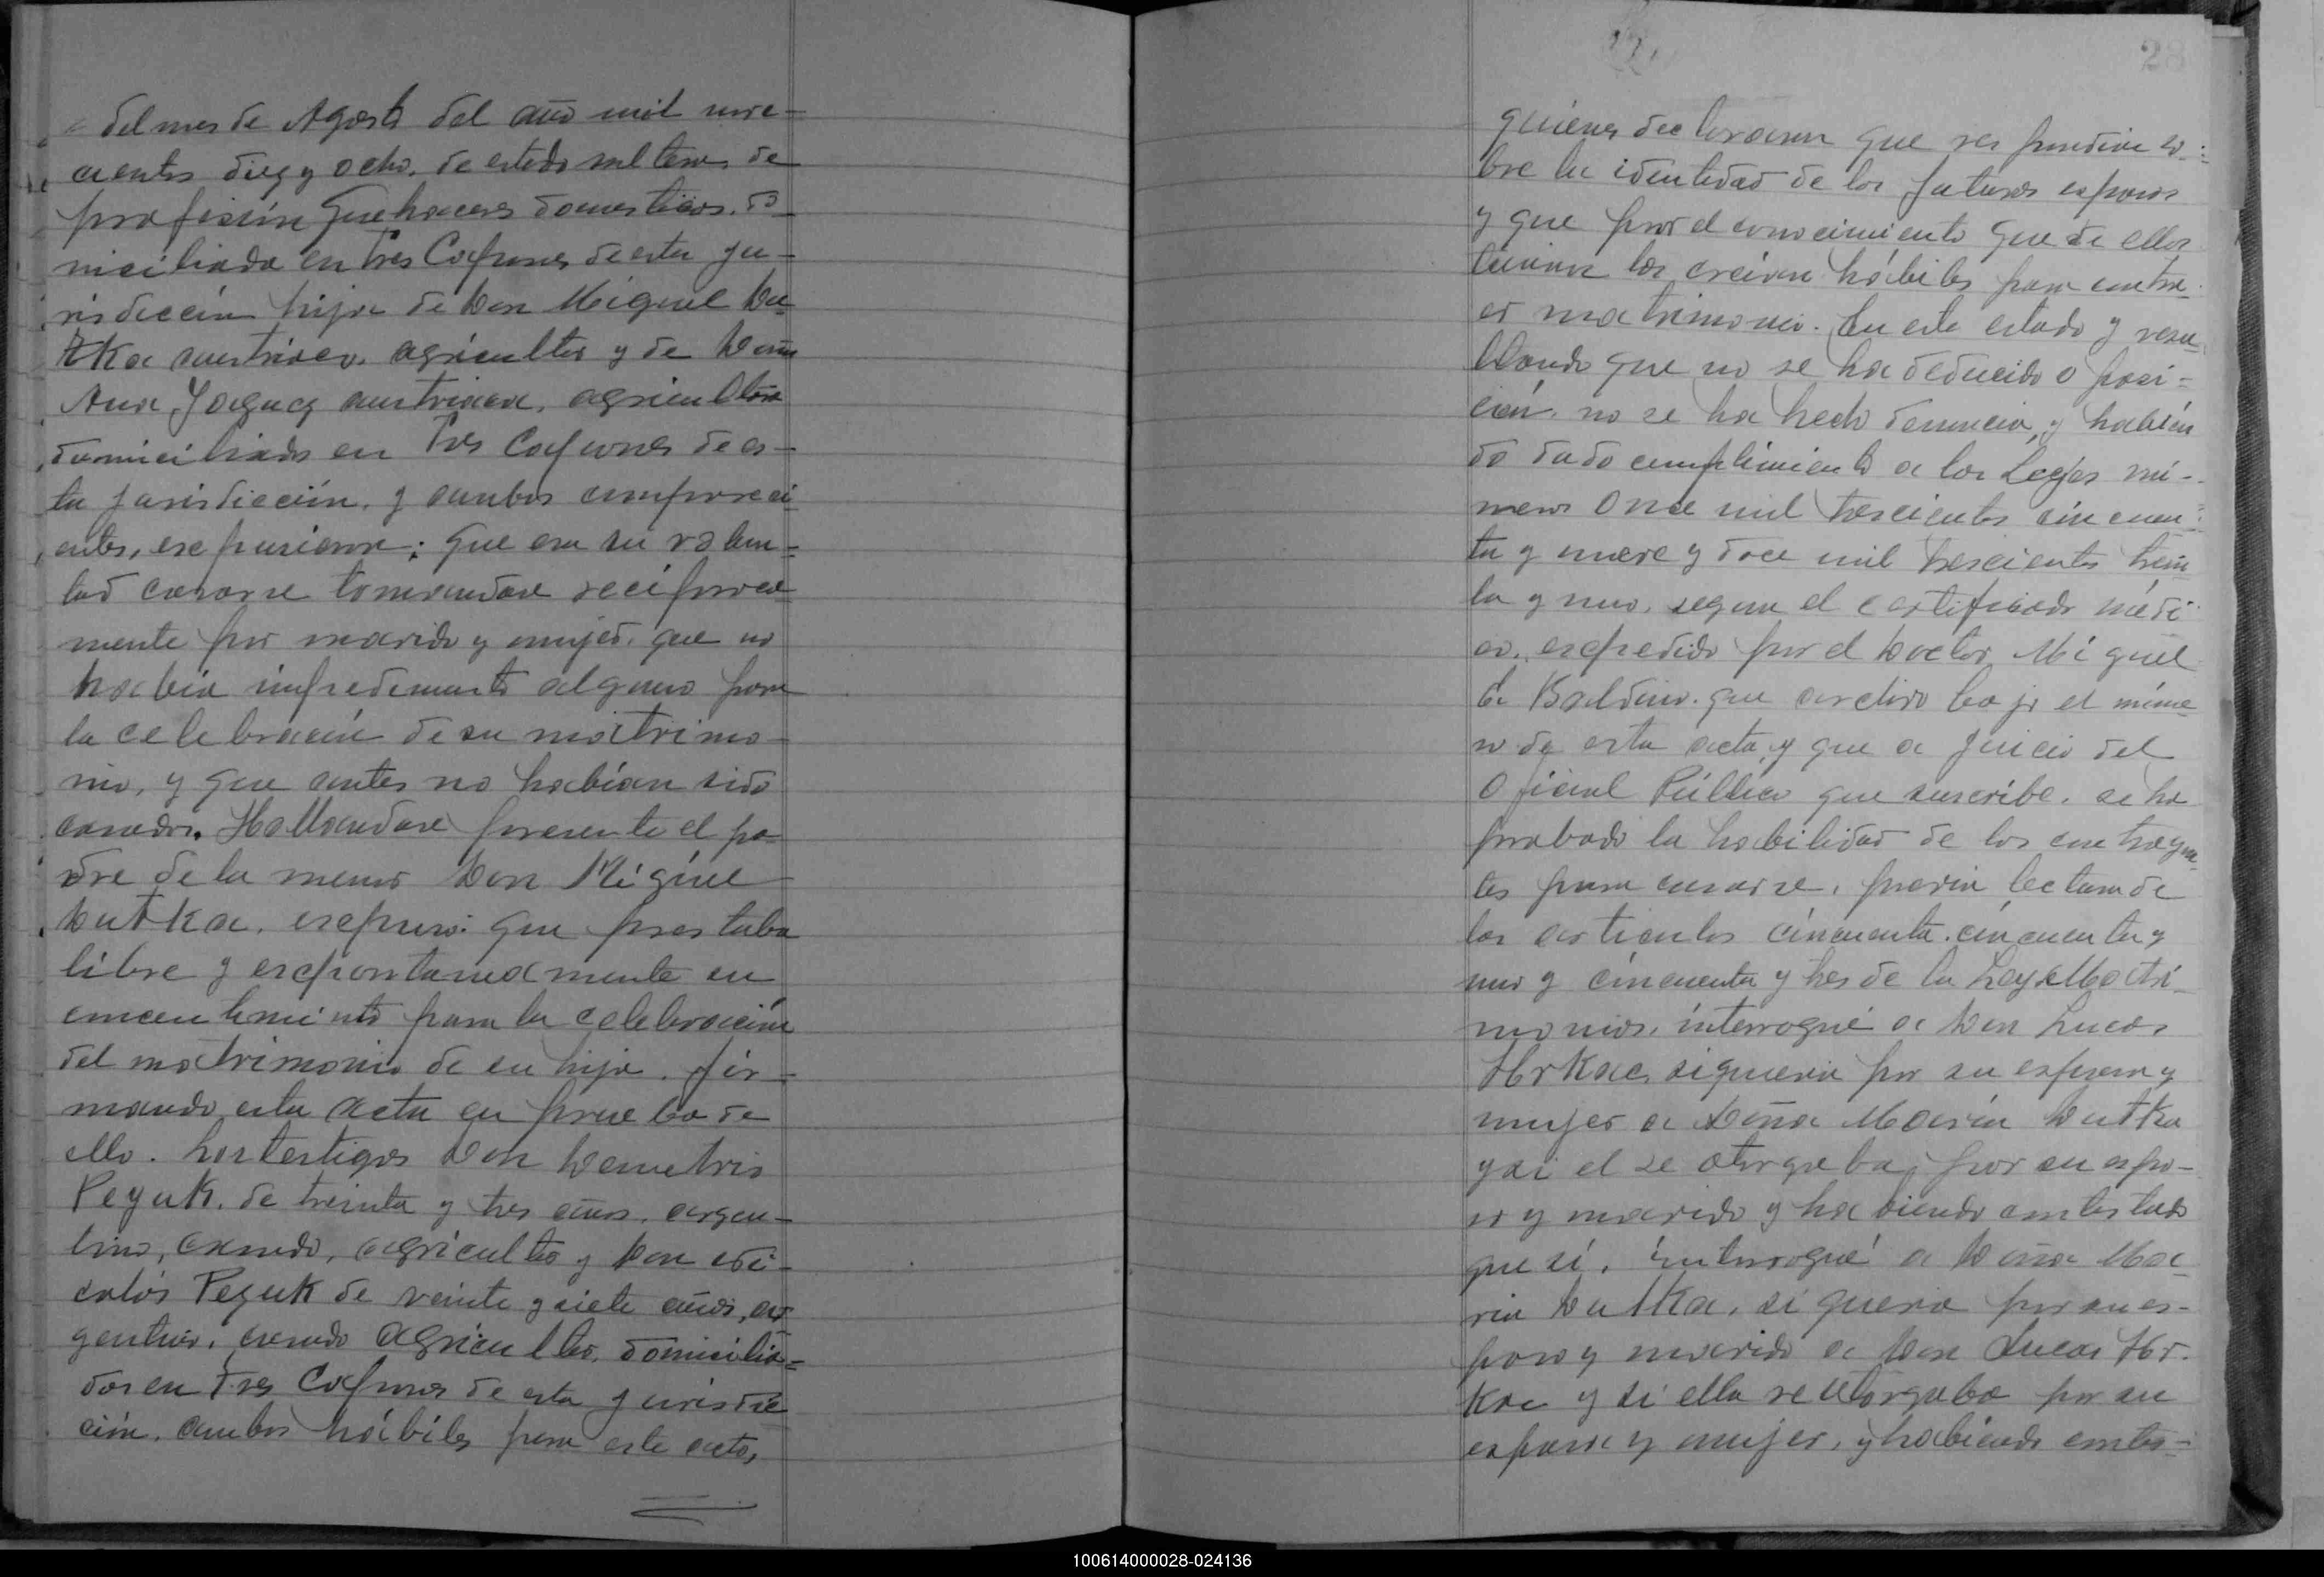 del mes de Agosto del año mil nove-
cientos diez y ocho, de estado soltera, de
profesión Quehaceres domesticos, do-
miciliada en Tres Capones de esta ju-
risdicción hija de Don Miguel Du-
tka austriaco, agricultor y de Doña
Ana Jaguez austriaca, agricultora
domiciliados en Tres Capones de es-
ta jurisdicción, y ambos compareci-
entes, expusieron: que era su volun-
tad casarse tomandose reciproca-
mente por marido y mujer, que no
habia impedimento alguno para
la celebración de su matrimo-
nio, y que antes no habían sido
casados. Hallandose presente el pa-
dre de la menor Don Miguel
Dutka, expuso: que prestaba
libre y expontaneamente su
consentimiento para la celebración
del matrimonio de su hija, fir-
mando esta acta en prueba de
ello. Los testigos Don Demetrio
Peyuk, de treinta y tres años, argen-
tino, casado, agricultor y Don Ni-
colás Peyuk de veinte y siete años, ar-
gentino, casado agricultor, domicilia-
dos en Tres Capones de esta jurisdic-
ción, ambos hábiles para este acto,
28
quienes declararon que respondian so-
bre la identidad de los futuros esposos
y que por el conocimiento que de ellos
tienen los creian hábiles para contra-
er matrimonio. En este estado y resu-
ltando que no se ha deducido oposi-
ción, no se ha hecho denuncia, y habién
do dado cumplimiento a las Leyes nú-
meros Once mil trescientos cincuen-
ta y nueve y doce mil trescientos trein
ta y uno, segun el certificado médi
co, expedido por el Doctor Miguel
de Baldino que archivo bajo el núme
ro de esta acta, y que a juicio del
Oficial Público que suscribe, se ha
probado la habilidad de los contrayen
tes para casarse, previa lectura de
los articulos cincuenta, cincuenta y
uno y cincuenta y tres de la Ley Matri-
monios, interrogué a Don Lucas
Hrkac, si queria por su esposa y
mujer a Doña María Dutka
y si el se otorgaba por su espo-
so y marido y habiendo contestado
que sí, interrogué a Doña Ma-
ria Dutka, si queria por su es-
poso y marido a Don Lucas Hr-
kac y si ella se otorgaba por su
esposa y mujer, y habiendo contes-
100614000028-024136